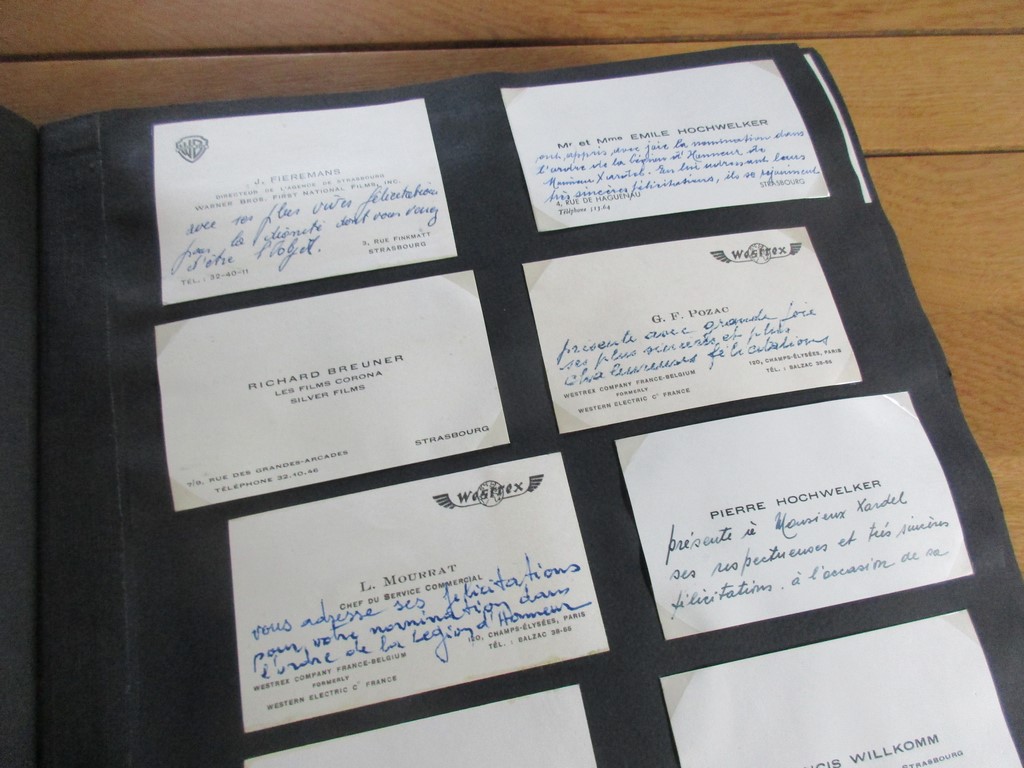 WB
J. FIEREMANS
DIRECTEUR DE L'AGENCE DE STRASBOURG
WARNER BROS. FIRST NATIONAL FILMS, INC.
avec ses plus vives félicitations
pour la dignité dont vous venez
d'être l'objet.
3, RUE FINKMATT
STRASBOURG
TÉL.: 32-40-11
Mr et Mme EMILE HOCHWELKER
ont appris avec joie la nomination dans
l'ordre de la Légion d'Honneur de
Monsieur Xardel. En lui adressant leurs
très sincères félicitations, ils se réjouissent
STRASBOURG
4, RUE DE HAGUENAU
Téléphone
RICHARD BREUNER
LES FILMS CORONA
SILVER FILMS
STRASBOURG
7/9, RUE DES GRANDES-ARCADES
TÉLÉPHONE 32.10.46
Westrex
G. F. POZAC
présente avec grande joie
ses plus sincères et plus
chaleureuses félicitations
120, CHAMPS-ÉLYSÉES, PARIS
TÉL. : BALZAC 38-66
WESTREX COMPANY FRANCE-BELGIUM
FORMERLY
WESTERN ELECTRIC Cº FRANCE
Westrex
L. MOURRAT
CHEF DU SERVICE COMMERCIAL
vous adresse ses félicitations
pour votre nomination dans
l'ordre de la Légion d'Honneur
120, CHAMPS-ÉLYSÉES, PARIS
TÉL. : BALZAC 38-66
WESTREX COMPANY FRANCE-BELGIUM
FORMERLY
WESTERN ELECTRIC Cº FRANCE
PIERRE HOCHWELKER
présente à Monsieur Xardel
ses respectueuses et très sincères
félicitations. à l'occasion de sa
WILLKOMM
STRASBOURG